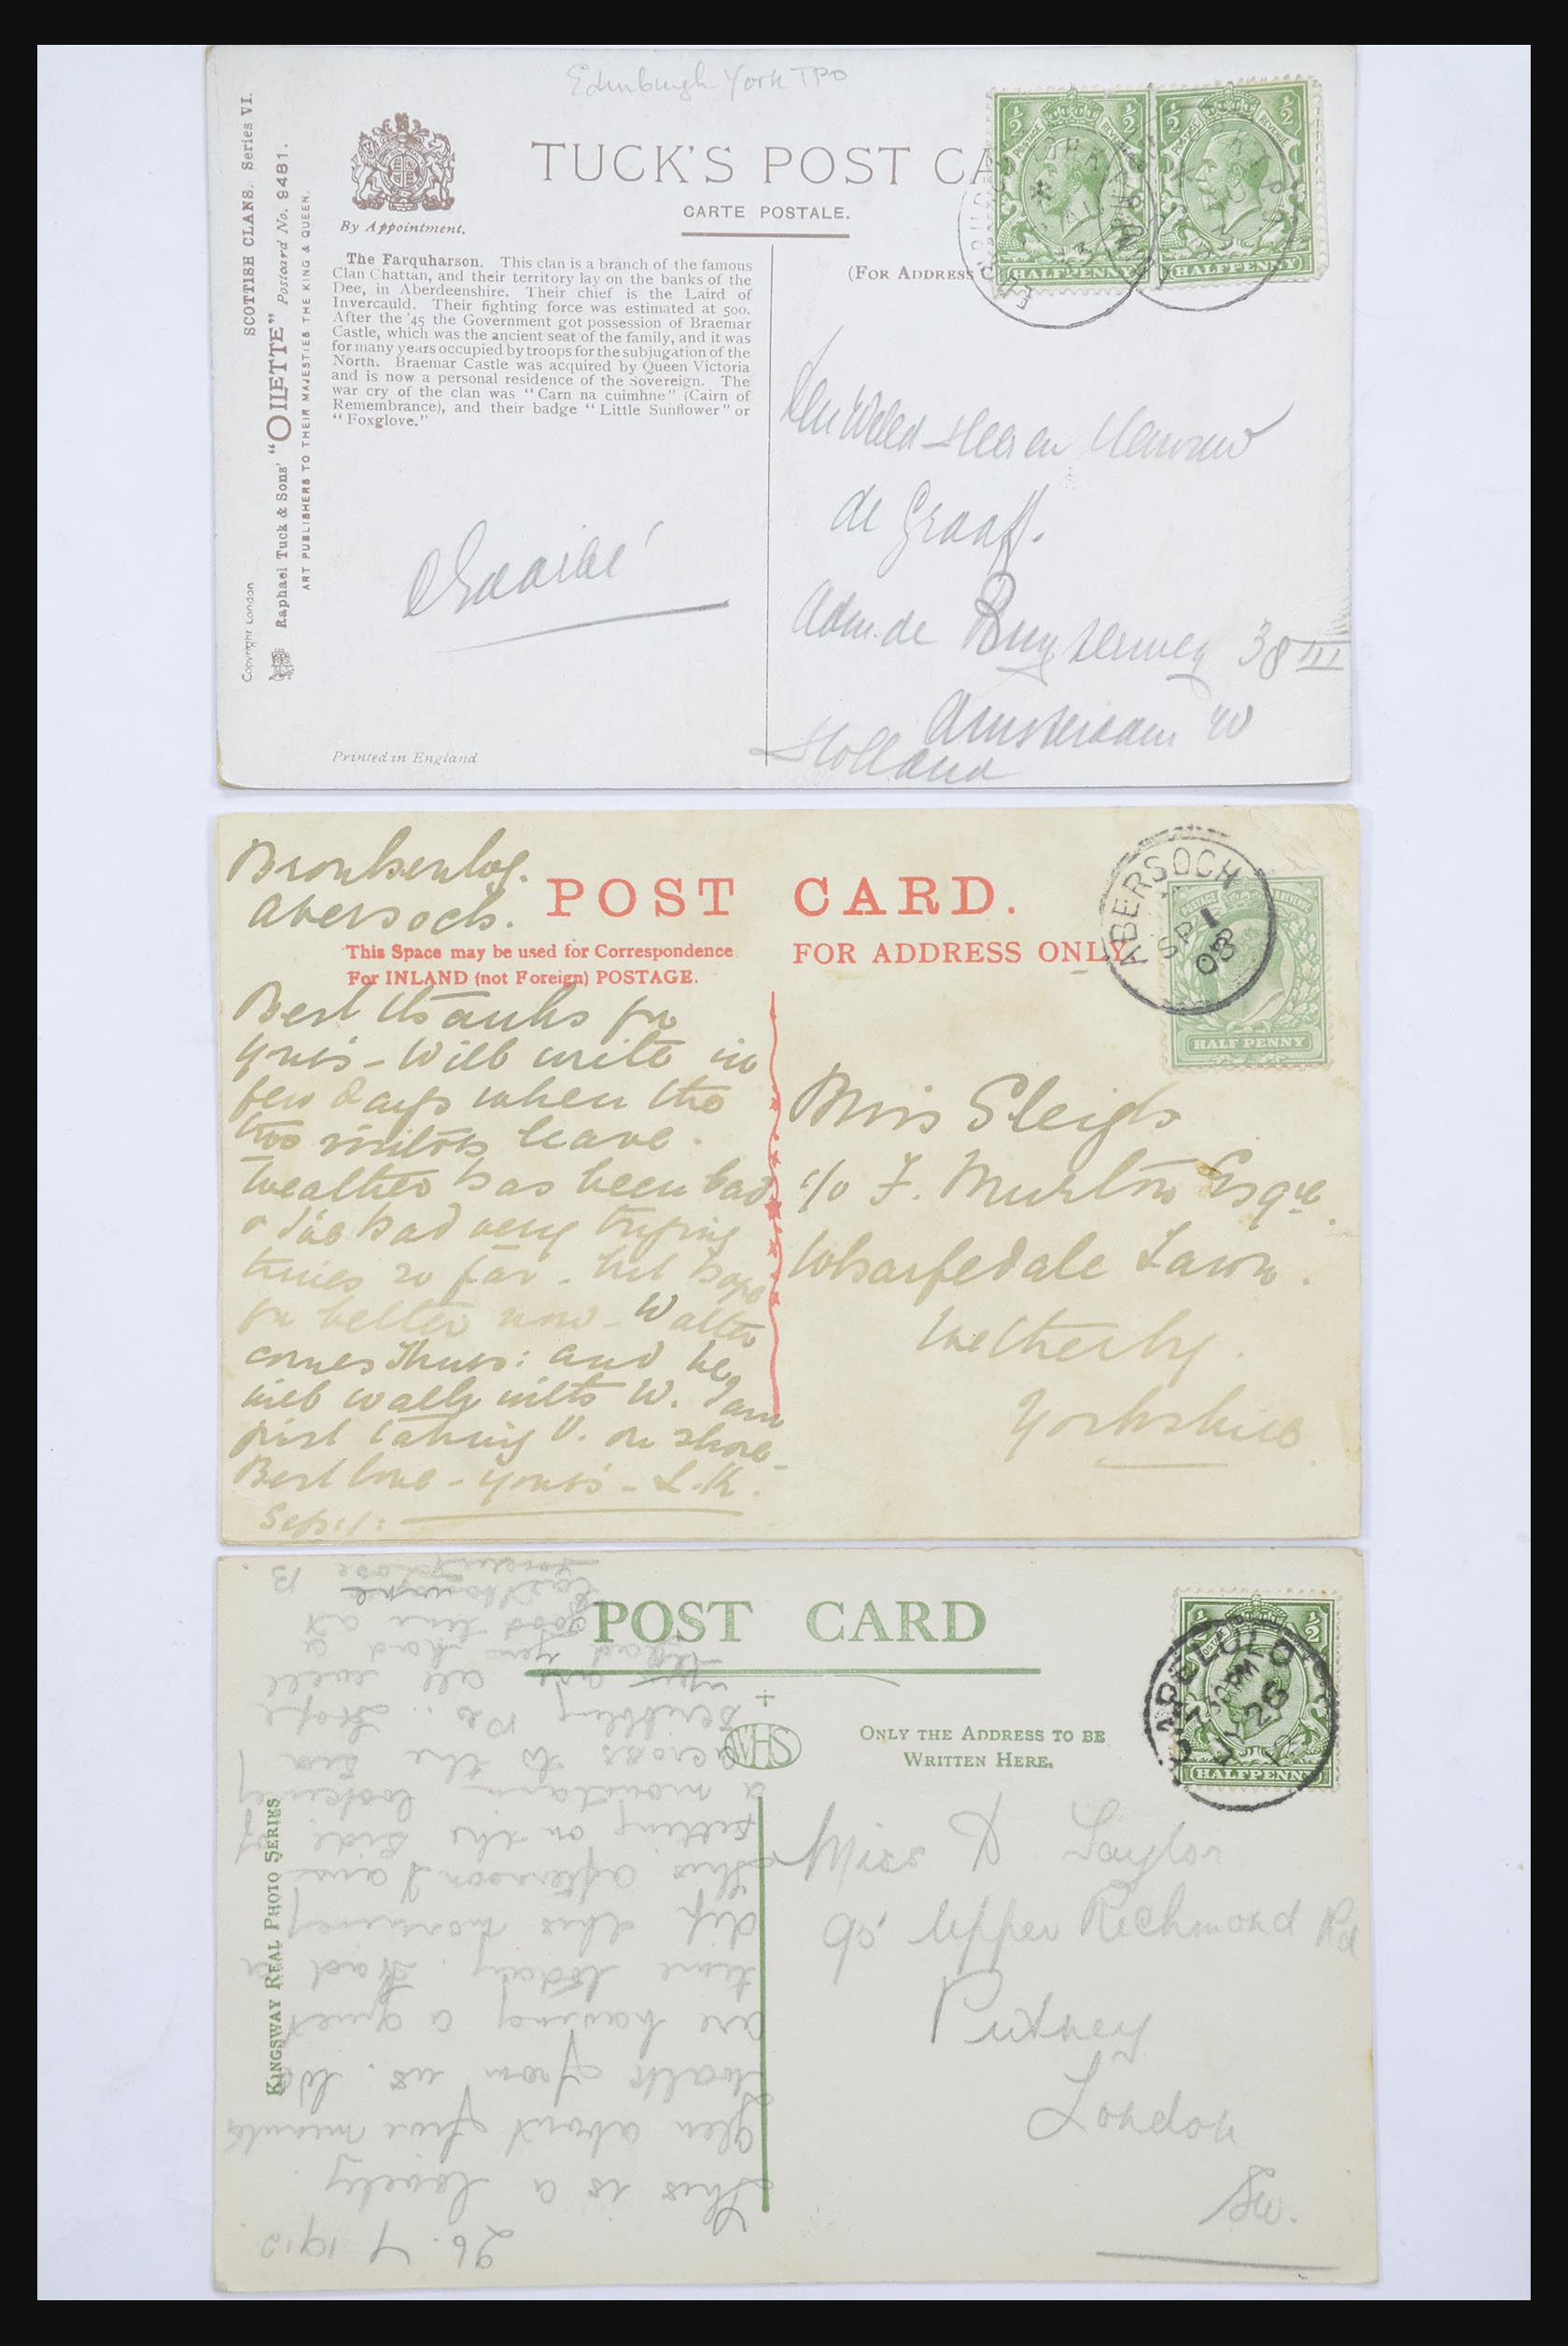 Edinburgh-York TPO
SCOTTISH CLANS. Series VI.
Raphael Tuck & Sons' "OILETTE" Postcard No. 9481.
ART PUBLISHERS TO THEIR MAJESTIES THE KING & QUEEN.
Copyright London
By Appointment.
TUCK'S POST CA
CARTE POSTALE.
(FOR ADDRESS
1/2 1/2
POSTAGE REVENUE
HALFPENNY
1/2 1/2
HALFPENNY
The Farquharson. This clan is a branch of the famous
Clan Chattan, and their territory lay on the banks of the
Dee, in Aberdeenshire. Their chief is the Laird of
Invercauld. Their fighting force was estimated at 500.
After the '45 the Government got possession of Braemar
Castle, which was the ancient seat of the family, and it was
for many years occupied by troops for the subjugation of the
North. Braemar Castle was acquired by Queen Victoria
and is now a personal residence of the Sovereign. The
war cry of the clan was "Carn na cuimhne" (Cairn of
Remembrance), and their badge "Little Sunflower" or
"Foxglove."
de Graaff.
Adm. de Ruyterweg 38 III
Amsterdam W
Holland
Printed in England
Abersoch.
POST CARD.
This Space may be used for Correspondence
For INLAND (not Foreign) POSTAGE.
FOR ADDRESS ONLY.
ABERSOCH
SP 1
08
POSTAGE REVENUE
HALF PENNY
Best thanks for
yours - Will write in
few days when the
two visitors leave.
Weather has been bad
had very trying
times so far - but hope
for better now - Walter
comes Thurs: and he
will walk with W. I am
just taking V. on shore -
Best love - yours - L.K.
Sept. 1:
Miss Sleigh
c/o F. Murton Esqre.
Wharfedale Lawn.
Wetherby.
Yorkshire
POST CARD
WHS
ONLY THE ADDRESS TO BE
WRITTEN HERE.
KINGSWAY REAL PHOTO SERIES
CAPELULO
30PM
26
12
1/2 1/2
HALFPENNY
Miss D Taylor
95 Upper Richmond Rd
Putney
London
SW.
26. 7 1912
This is a lovely
glen about five minutes
walk from us. We
are having a quiet
time today. Had a
dip this morning
this afternoon I am
sitting on the side of
a mountain looking
across to the sea
scribbling Pc.. Hope
you are all well
had you had a
good time at
Eastbourne